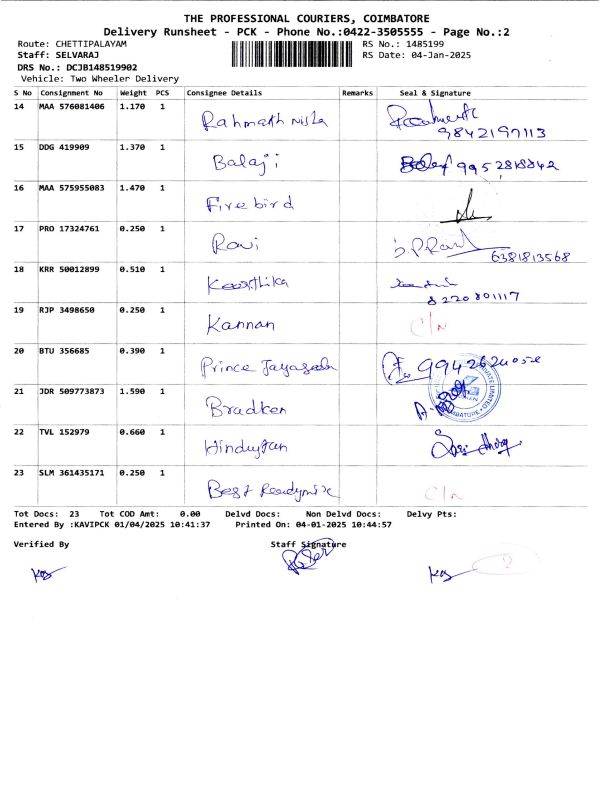 THE PROFESSIONAL COURIERS, COIMBATORE
Delivery Runsheet - PCK - Phone No.:0422-3505555 - Page No.:2
Route: CHETTIPALAYAM RS No.: 1485199
Staff: SELVARAJ RS Date: 04-Jan-2025
DRS No.: DCJB148519902
Vehicle: Two Wheeler Delivery
S No Consignment No Weight PCS Consignee Details Remarks Seal & Signature
14 MAA 576081406 1.170 1 Rahmath nisha
9842197113
15 DDG 419909 1.370 1 Balaji 9952818842
16 MAA 575955083 1.470 1 Fire bird
17 PRO 17324761 0.250 1 Ravi
6381813568
18 KRR 50012899 0.510 1 Keerthika
8220801117
19 RJP 3498650 0.250 1 Kannan C/N
20 BTU 356685 0.390 1 Prince 
21 JDR 509773873 1.590 1 Bradken
22 TVL 152979 0.660 1 Hindustan
23 SLM 361435171 0.250 1 Best Readymix C/N
Tot Docs: 23 Tot COD Amt: 0.00 Delvd Docs: Non Delvd Docs: Delvy Pts:
Entered By :KAVIPCK 01/04/2025 10:41:37 Printed On: 04-01-2025 10:44:57
Verified By Staff Signature